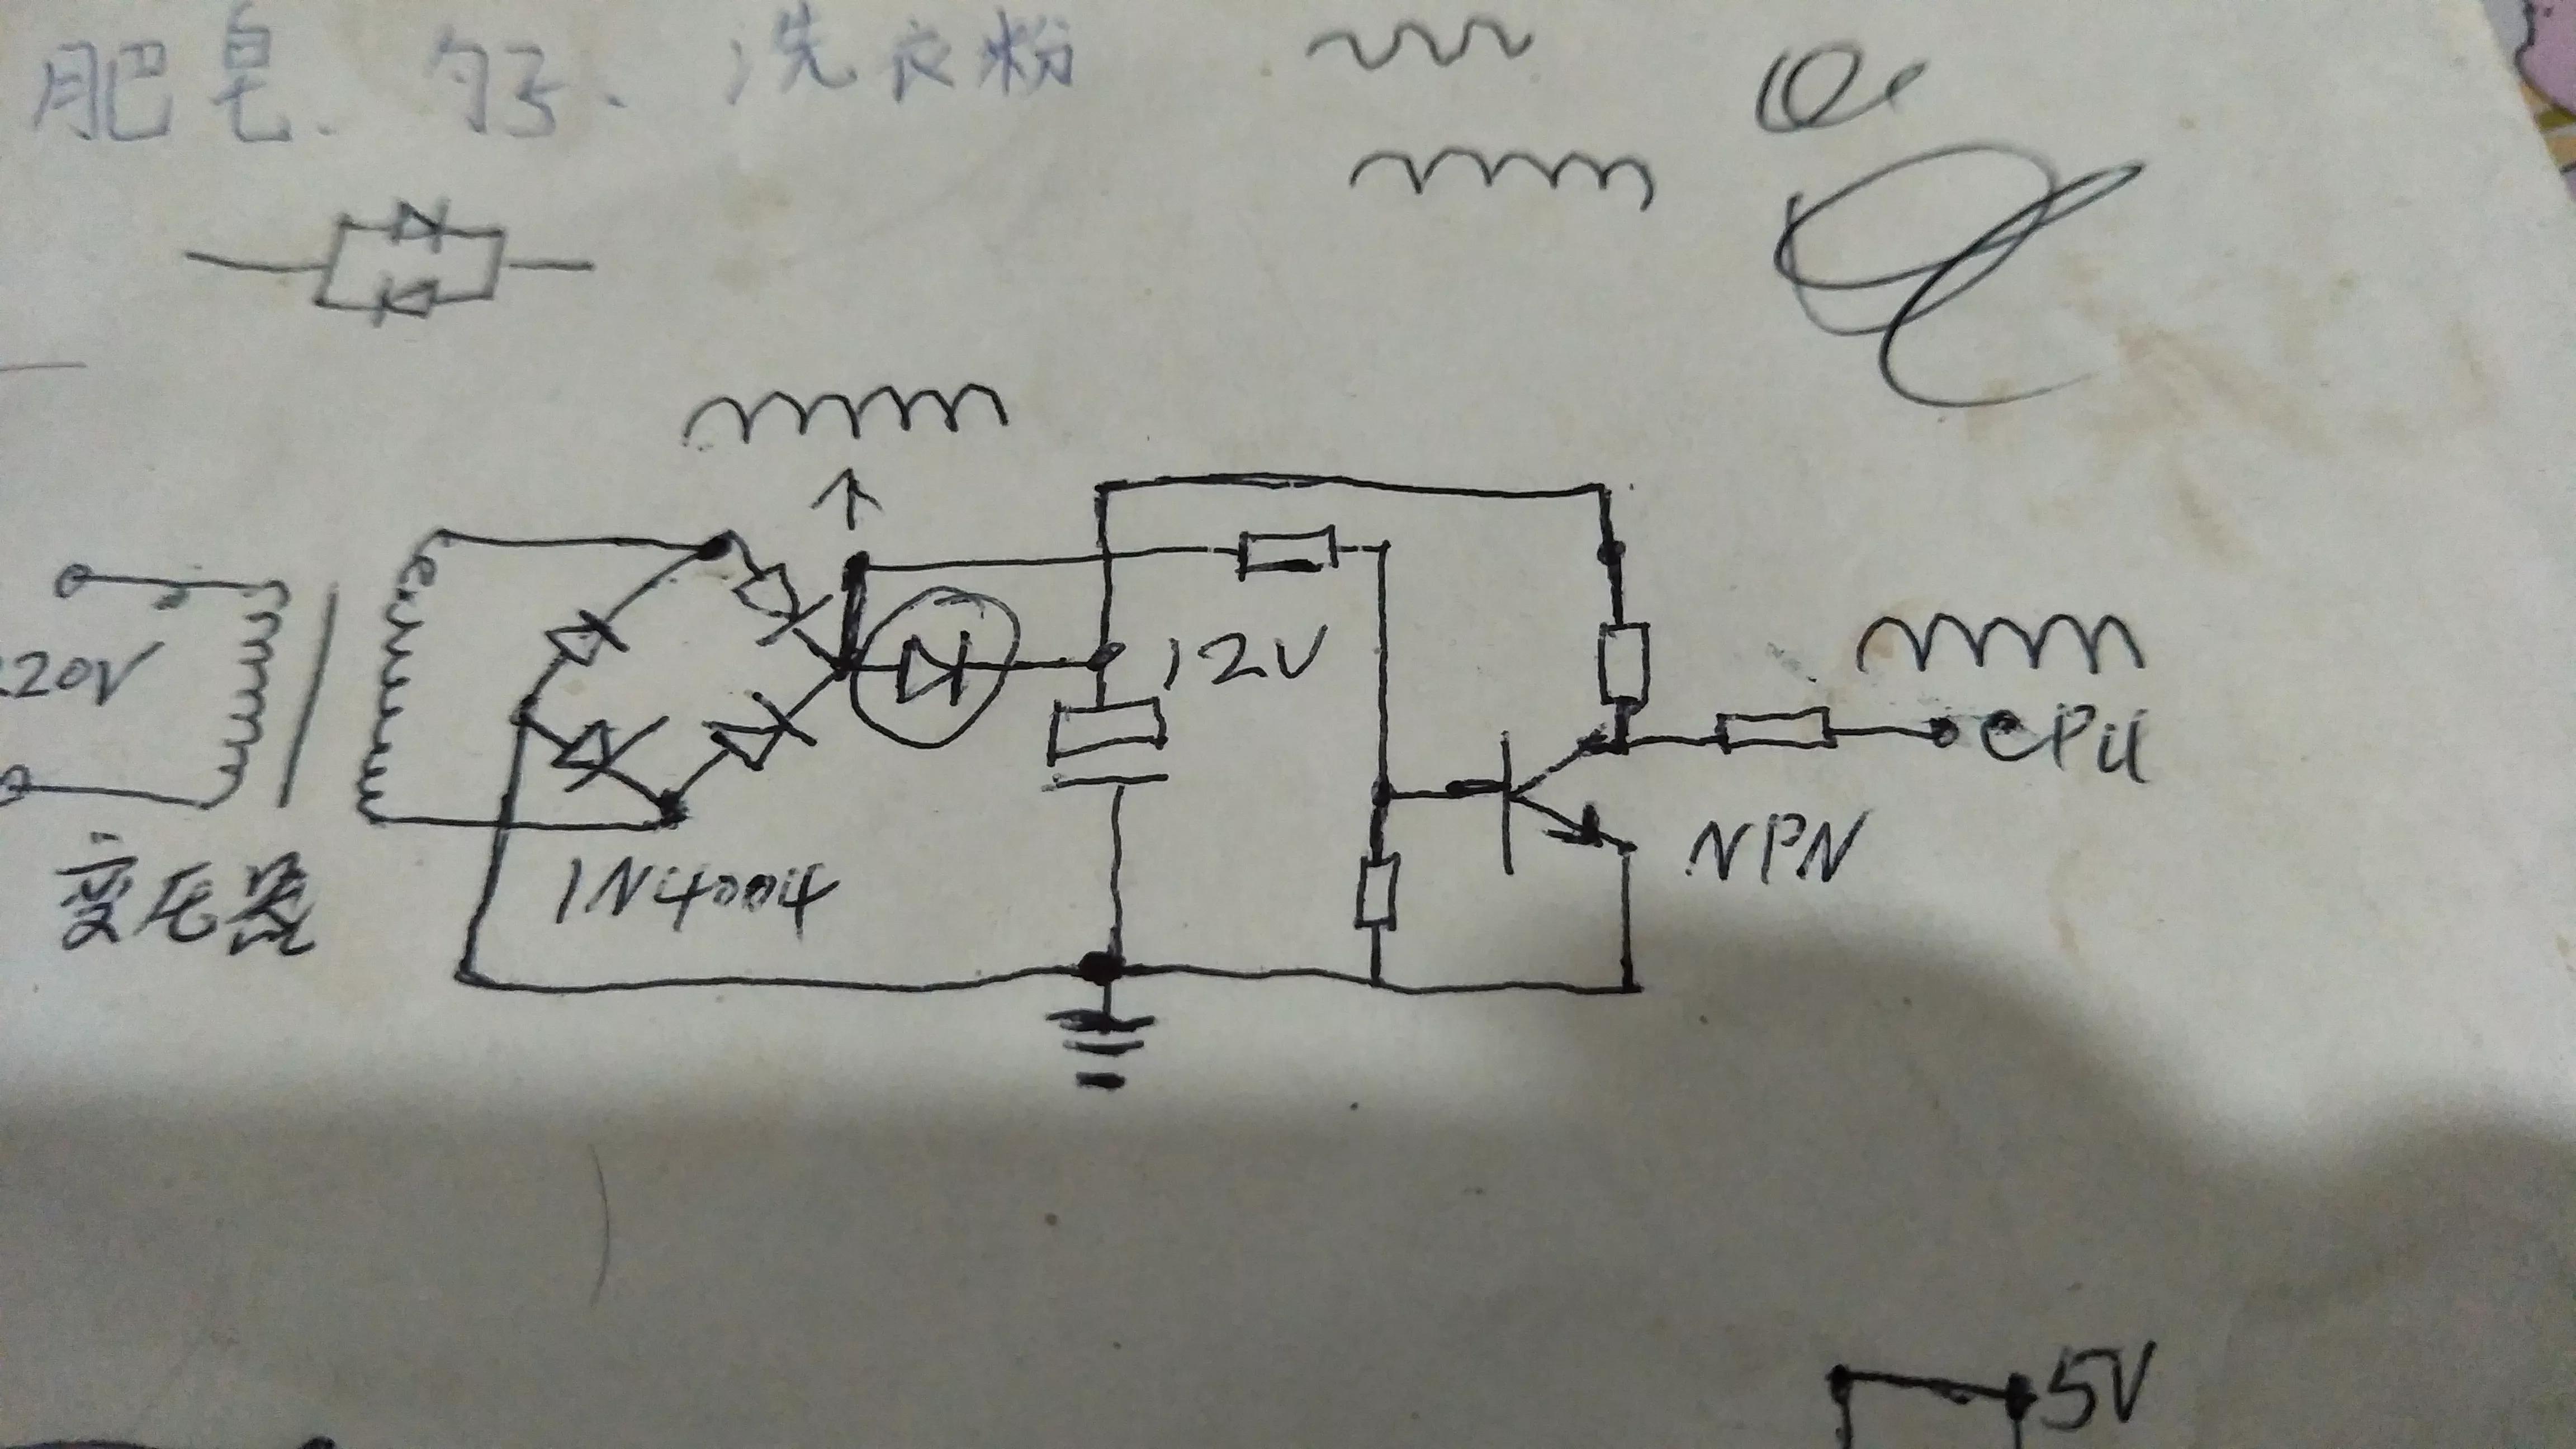 肥皂、勺子、洗衣粉
220V
12V
CPU
NPN
1N4004
变压器
5V